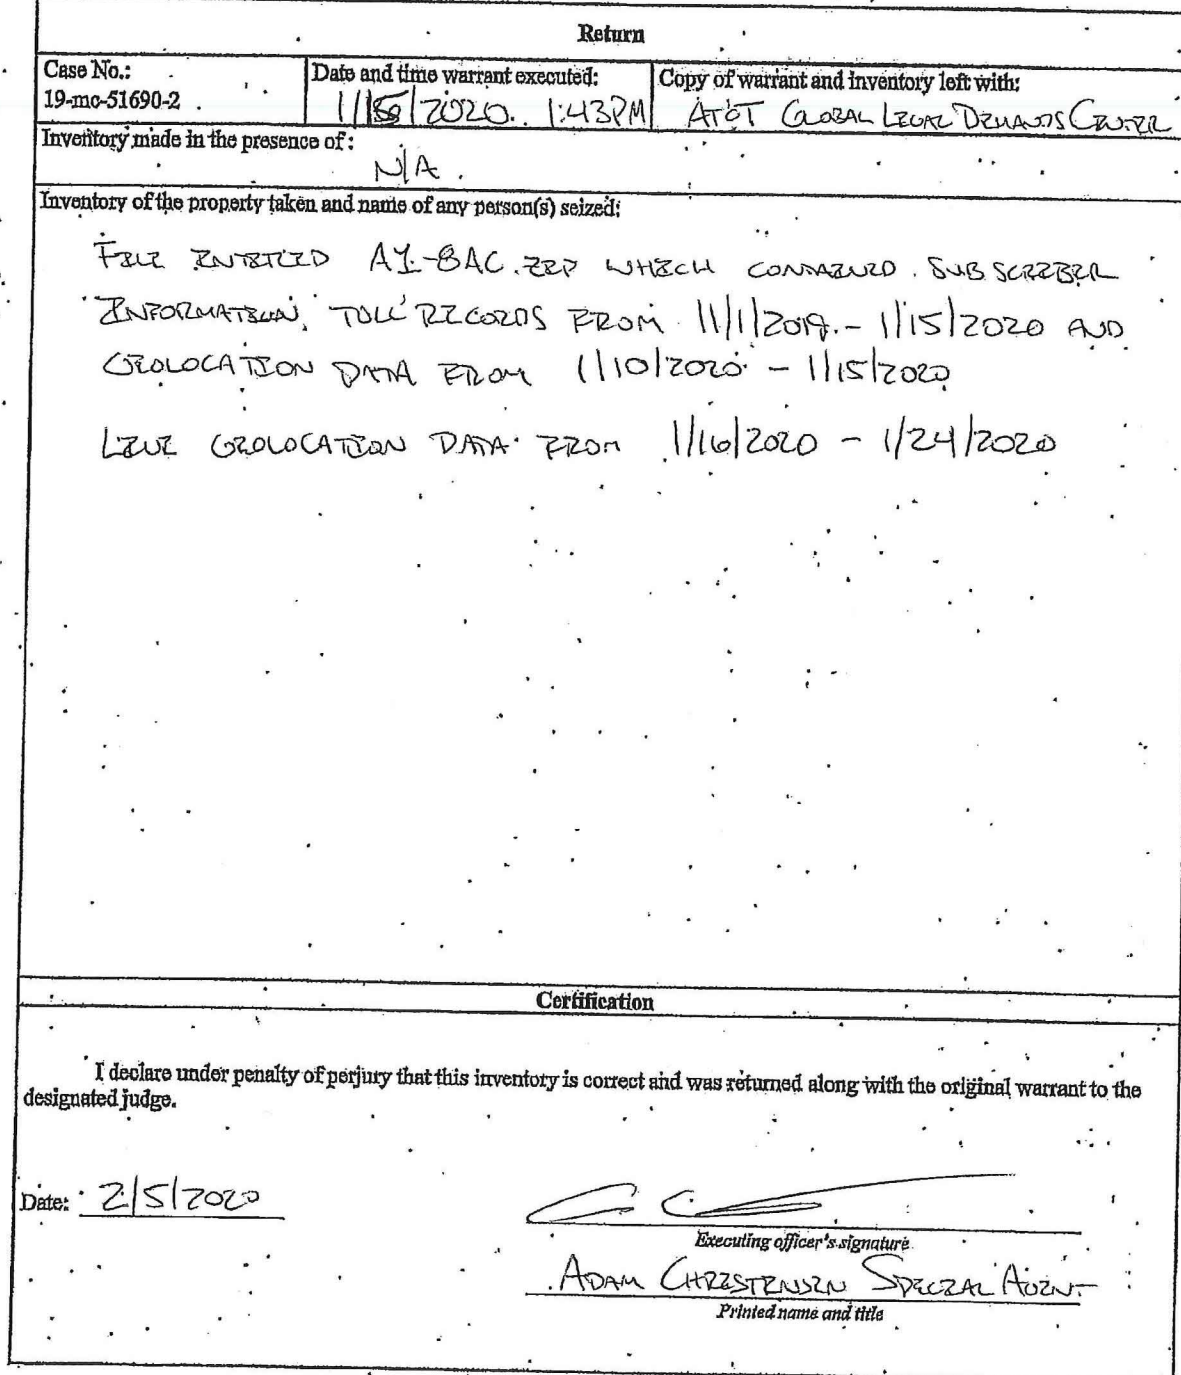 Return
Case No.:
19-mc-51690-2
Date and time warrant executed:
1/15/2020 1:43PM
Copy of warrant and inventory left with:
AT&T GLOBAL LEGAL DEMANDS CENTER
Inventory made in the presence of :
N/A
Inventory of the property taken and name of any person(s) seized:
FILE ENTITLED .ZIP WHICH CONTAINED SUBSCRIBER
INFORMATION, TOLL RECORDS FROM 11/1/2019 - 1/15/2020 AND
GEOLOCATION DATA FROM 1/10/2020 - 1/15/2020
LIVE GEOLOCATION DATA FROM 1/16/2020 - 1/24/2020
Certification
I declare under penalty of perjury that this inventory is correct and was returned along with the original warrant to the
designated judge.
Date: 2/5/2020
Executing officer's signature
ADAM CHRISTENSEN SPECIAL AGENT
Printed name and title